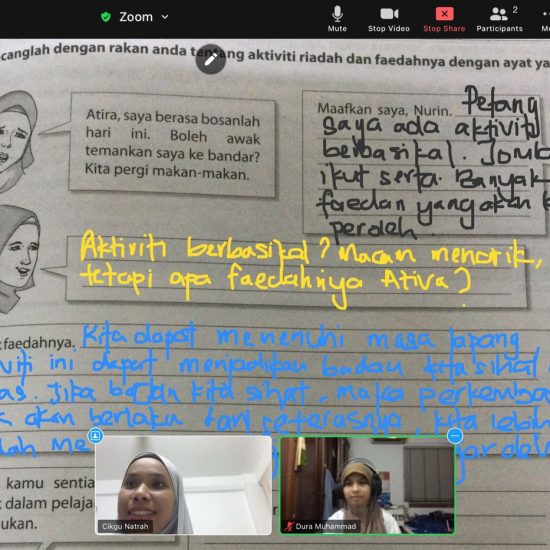 Zoom
Mute
Stop Video
Stop Share
2
Participants
canglah dengan rakan anda tentang aktiviti riadah dan faedahnya dengan ayat ya
Atira, saya berasa bosanlah
hari ini. Boleh awak
temankan saya ke bandar?
Kita pergi makan-makan.
Maafkan saya, Nurin. Petang
saya ada aktiviti
berbasikal. Jom
ikut serta. Banyak
faedah yang akan k
peroleh.
Aktiviti berbasikal? Macam menarik,
tetapi apa faedahnya Atira?
faedahnya. Kita dapat memenuhi masa lapang
viti ini dapat menjadikan badan kita sihat
as. Jika badan kita sihat, maka perkemba
akan berlaku dan seterusnya, kita lebih
kamu sentia
dalam pelaja
ukan.
Cikgu Natrah
Dura Muhammad